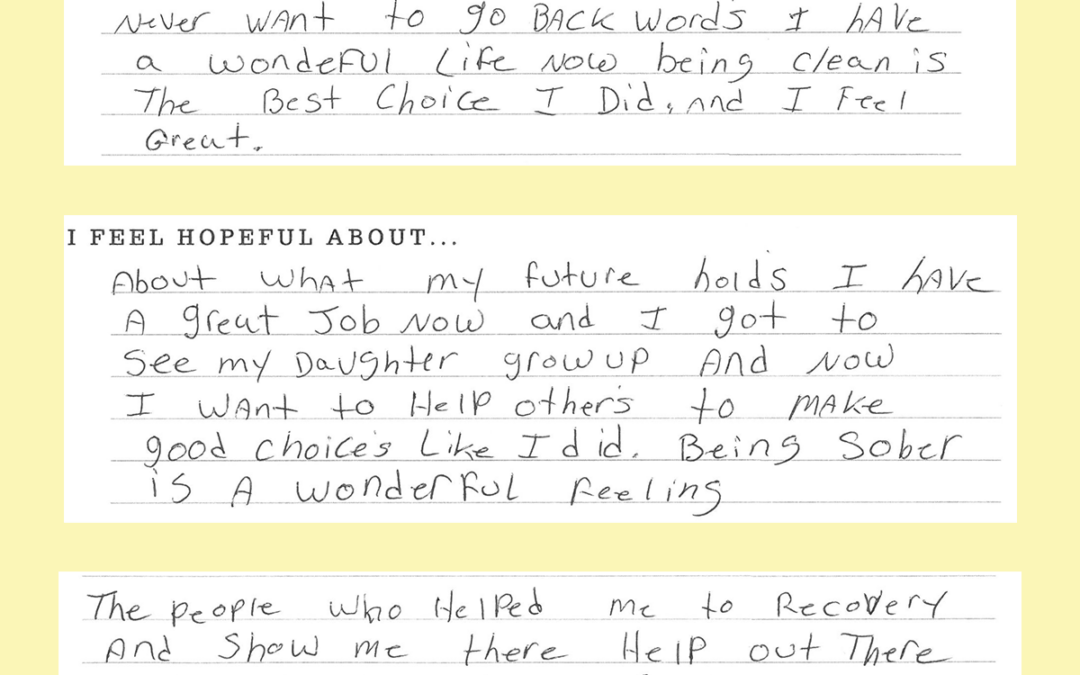 Never WANt to go BACK words I hAVe
a wondeFUl Life Now being clean is
The Best Choice I Did, and I Feel
Great.
I FEEL HOPEFUL ABOUT...
About whAt my future holds I hAVe
A great Job Now and I got to
See my Daughter grow up And Now
I WAnt to Help other's to MAke
good choice's Like I did. Being Sober
is A wonderful feeling
The people who Helped me to Recovery
And Show me there Help out There